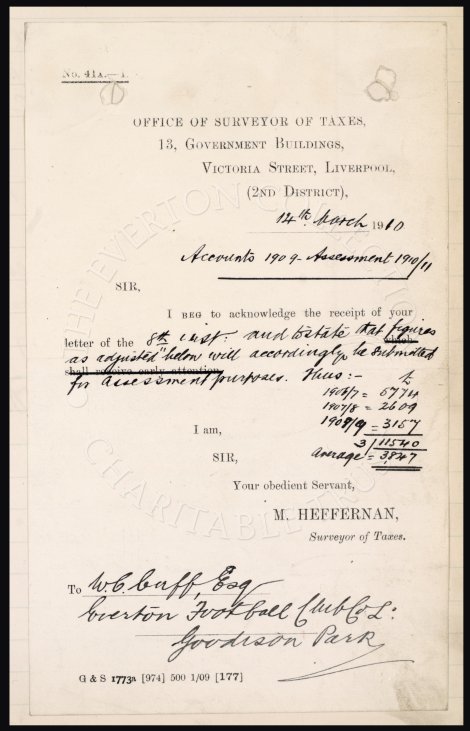 No. 41A.—1.
OFFICE OF SURVEYOR OF TAXES,
13, GOVERNMENT BUILDINGS,
VICTORIA STREET, LIVERPOOL,
(2ND DISTRICT),
14th March 1910
Accounts 1909 - Assessment 1910/11
SIR,
I BEG to acknowledge the receipt of your
letter of the 8th inst: and to state that figures which
as adjusted below will accordingly be submitted
shall receive early attention.
for assessment purposes. Thus:- £
1906/7 = 5774
1907/8 = 2609
I am, 1908/9 = 3157
3/11540
SIR, Average = 3847
Your obedient Servant,
M. HEFFERNAN,
Surveyor of Taxes.
To W.C. Cuff, Esq
Everton Football Club Co L:
Goodison Park
G & S 1773a [974] 500 1/09 [177]
THE EVERTON COLLECTION
CHARITABLE TRUST